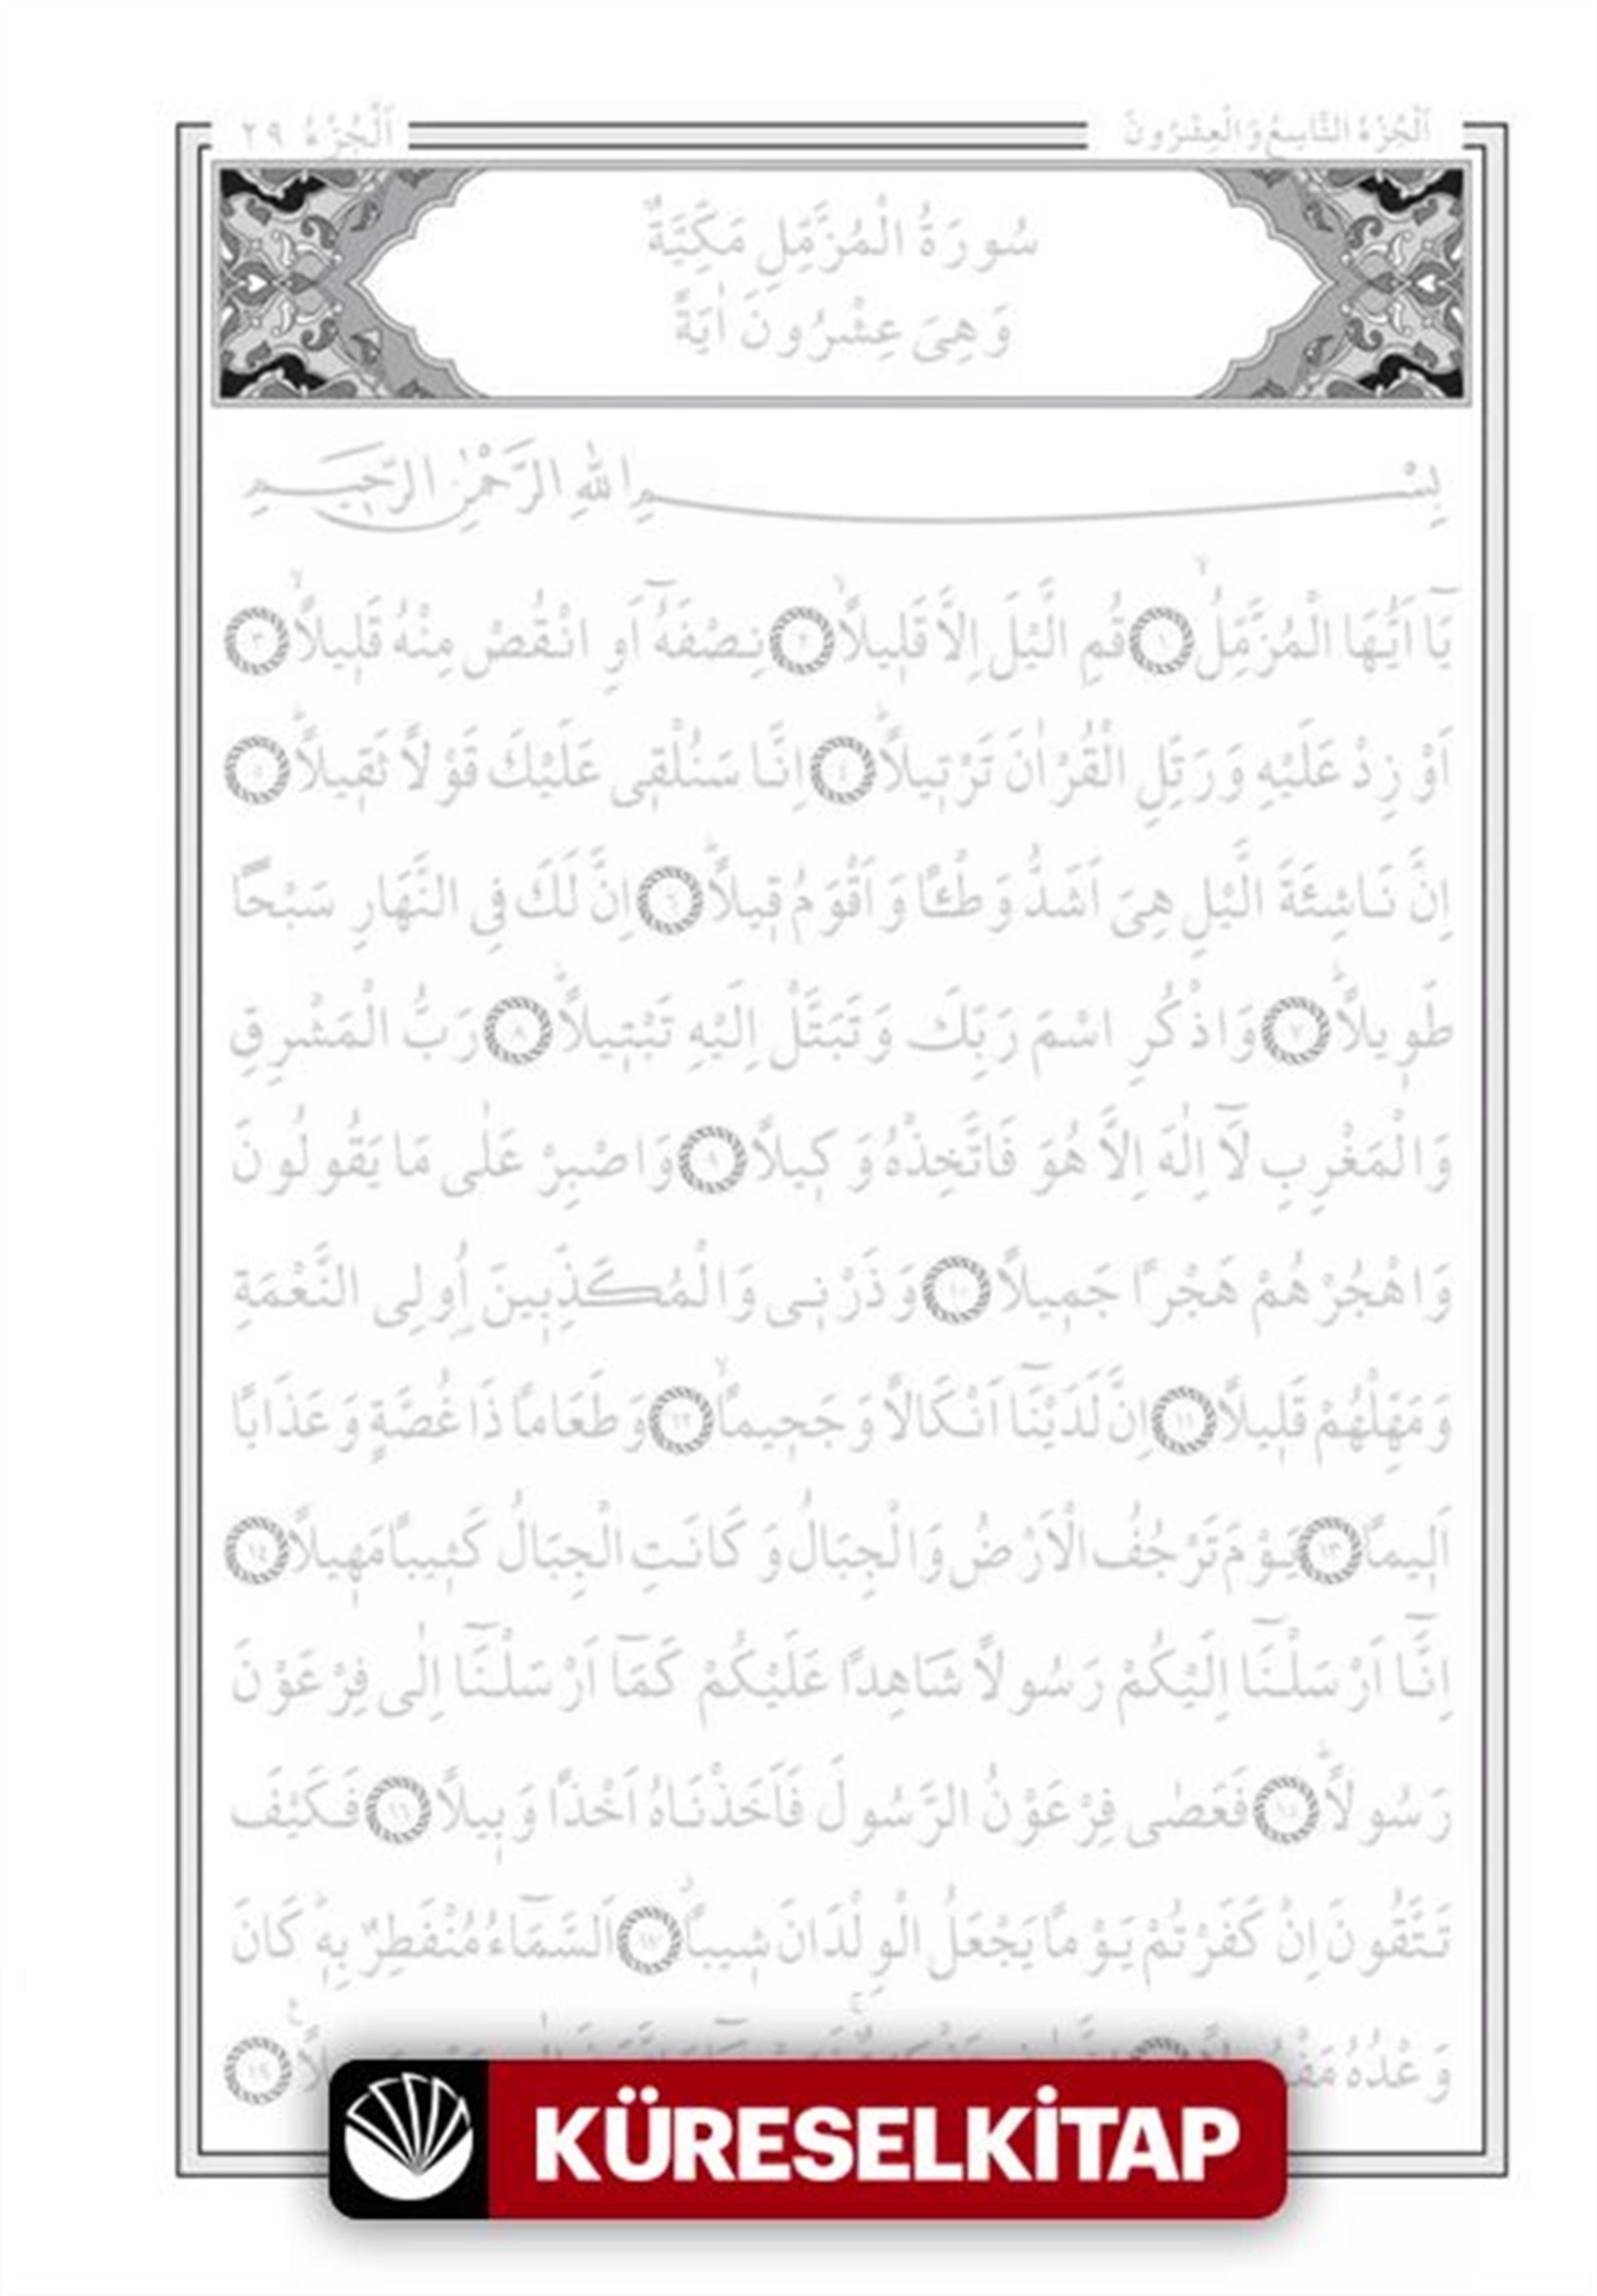 اَلْجُزْءُ التَّاسِعُ وَالْعِشْرُونَ
اَلْجُزْءُ ٢٩
سُورَةُ الْمُزَّمِّلِ مَكِّيَّةٌ
وَهِىَ عِشْرُونَ اٰيَةً
بِسْمِ اللّٰهِ الرَّحْمٰنِ الرَّحِيمِ
يَٓا اَيُّهَا الْمُزَّمِّلُۙ ﴿١﴾ قُمِ الَّيْلَ اِلَّا قَل۪يلًاۙ ﴿٢﴾ نِصْفَهُٓ اَوِ انْقُصْ مِنْهُ قَل۪يلًاۙ ﴿٣﴾
اَوْ زِدْ عَلَيْهِ وَرَتِّلِ الْقُرْاٰنَ تَرْت۪يلًاۜ ﴿٤﴾ اِنَّا سَنُلْق۪ى عَلَيْكَ قَوْلًا ثَق۪يلًاۜ ﴿٥﴾
اِنَّ نَاشِئَةَ الَّيْلِ هِىَ اَشَدُّ وَطْـًٔا وَاَقْوَمُ ق۪يلًاۜ ﴿٦﴾ اِنَّ لَكَ فِى النَّهَارِ سَبْحًا
طَو۪يلًاۜ ﴿٧﴾ وَاذْكُرِ اسْمَ رَبِّكَ وَتَبَتَّلْ اِلَيْهِ تَبْت۪يلًاۜ ﴿٨﴾ رَبُّ الْمَشْرِقِ
وَالْمَغْرِبِ لَٓا اِلٰهَ اِلَّا هُوَ فَاتَّخِذْهُ وَك۪يلًا ﴿٩﴾ وَاصْبِرْ عَلٰى مَا يَقُولُونَ
وَاهْجُرْهُمْ هَجْرًا جَم۪يلًا ﴿١٠﴾ وَذَرْن۪ى وَالْمُكَذِّب۪ينَ اُو۬لِى النَّعْمَةِ
وَمَهِّلْهُمْ قَل۪يلًا ﴿١١﴾ اِنَّ لَدَيْنَٓا اَنْكَالًا وَجَح۪يمًاۙ ﴿١٢﴾ وَطَعَامًا ذَا غُصَّةٍ وَعَذَابًا
اَل۪يمًا ﴿١٣﴾ يَوْمَ تَرْجُفُ الْاَرْضُ وَالْجِبَالُ وَكَانَتِ الْجِبَالُ كَث۪يبًا مَه۪يلًا ﴿١٤﴾
اِنَّٓا اَرْسَلْنَٓا اِلَيْكُمْ رَسُولًا شَاهِدًا عَلَيْكُمْ كَمَٓا اَرْسَلْنَٓا اِلٰى فِرْعَوْنَ
رَسُولًاۜ ﴿١٥﴾ فَعَصٰى فِرْعَوْنُ الرَّسُولَ فَاَخَذْنَاهُ اَخْذًا وَب۪يلًا ﴿١٦﴾ فَكَيْفَ
تَتَّقُونَ اِنْ كَفَرْتُمْ يَوْمًا يَجْعَلُ الْوِلْدَانَ ش۪يبًاۗ ﴿١٧﴾ اَلسَّمَٓاءُ مُنْفَطِرٌ بِه۪ۜ كَانَ
وَعْدُهُ ﴿١٩﴾
KÜRESELKİTAP